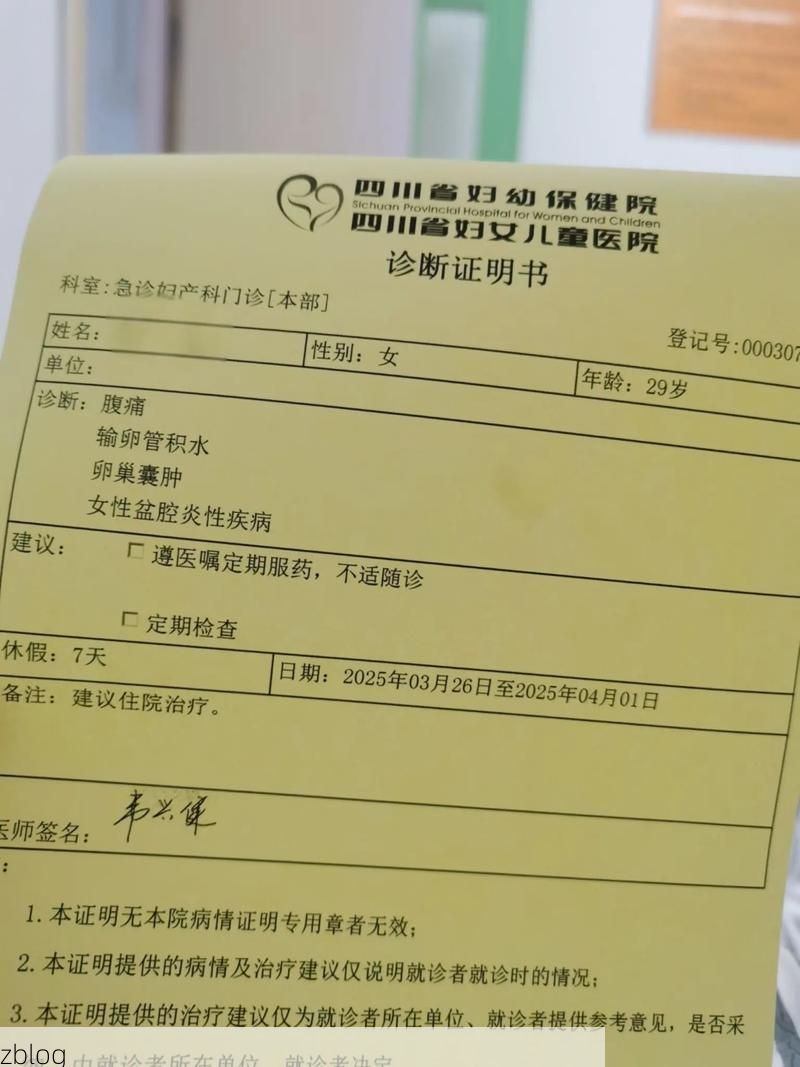 四川省妇幼保健院
Sichuan Provincial Hospital for Women and Children
四川省妇女儿童医院
诊断证明书
科室:急诊妇产科门诊[本部]
登记号:000307
姓名:
性别: 女
年龄: 29岁
单位:
诊断: 腹痛
输卵管积水
卵巢囊肿
女性盆腔炎性疾病
建议: 遵医嘱定期服药, 不适随诊
定期检查
休假: 7天
日期: 2025年03月26日至2025年04月01日
备注: 建议住院治疗。
医师签名:
1.本证明无本院病情证明专用章者无效;
2.本证明提供的病情及治疗建议仅说明就诊者就诊时的情况;
3.本证明提供的治疗建议仅为就诊者所在单位、就诊者提供参考意见, 是否采
由就诊者所在单位、就诊者决定
zblog